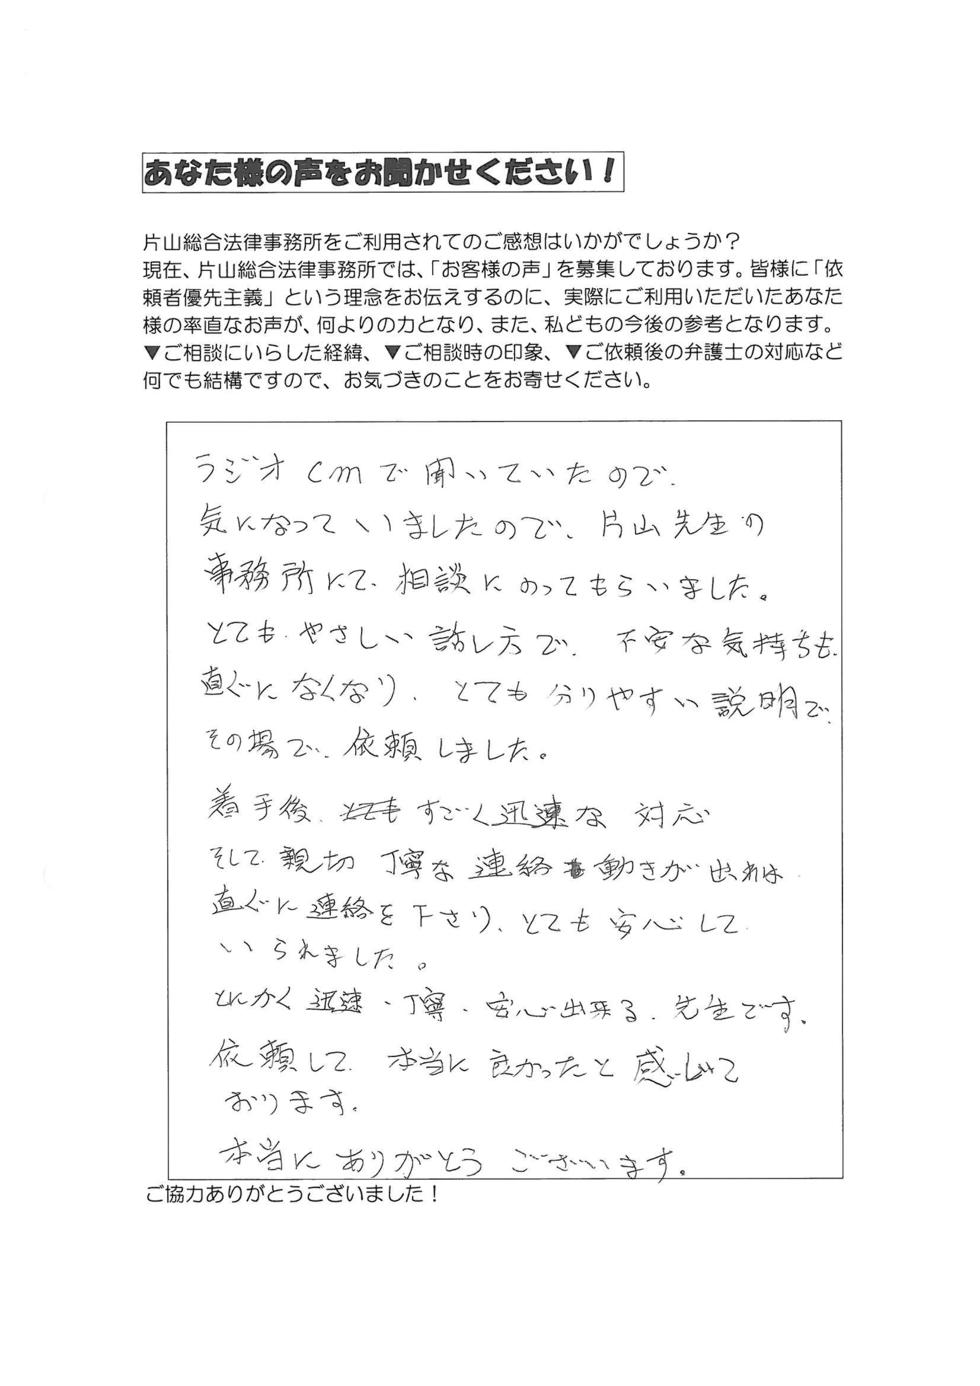 あなた様の声をお聞かせください！
片山総合法律事務所をご利用されてのご感想はいかがでしょうか？
現在、片山総合法律事務所では、「お客様の声」を募集しております。皆様に「依
頼者優先主義」という理念をお伝えするのに、実際にご利用いただいたあなた
様の率直なお声が、何よりの力となり、また、私どもの今後の参考となります。
▼ご相談にいらした経緯、▼ご相談時の印象、▼ご依頼後の弁護士の対応など
何でも結構ですので、お気づきのことをお寄せください。
ラジオcmで聞いていたので、
気になっていましたので、片山先生の
事務所にて、相談にのってもらいました。
とても、やさしい話し方で、不安な気持ちも、
直ぐになくなり、とても分りやすい説明で、
その場で、依頼しました。
着手後、とても すごく迅速な 対応
そして、親切 丁寧な連絡 動きが出れば
直ぐに連絡を下さり、とても安心して
いられました。
とにかく迅速・丁寧・安心出来る、先生です。
依頼して、本当に良かったと感じて
おります。
本当にありがとうございます。
ご協力ありがとうございました！